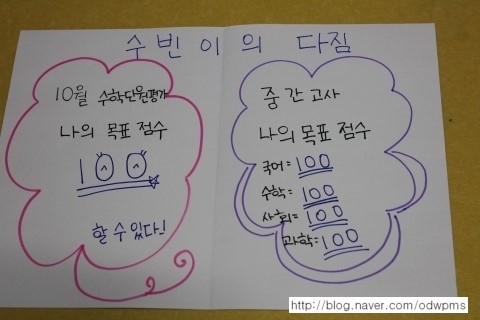 수빈이의 다짐
10월 수학단원평가
나의 목표 점수
100
할 수 있다!
중간고사
나의 목표 점수
국어=100
수학=100
사회=100
과학=100
http://blog.naver.com/odwpms